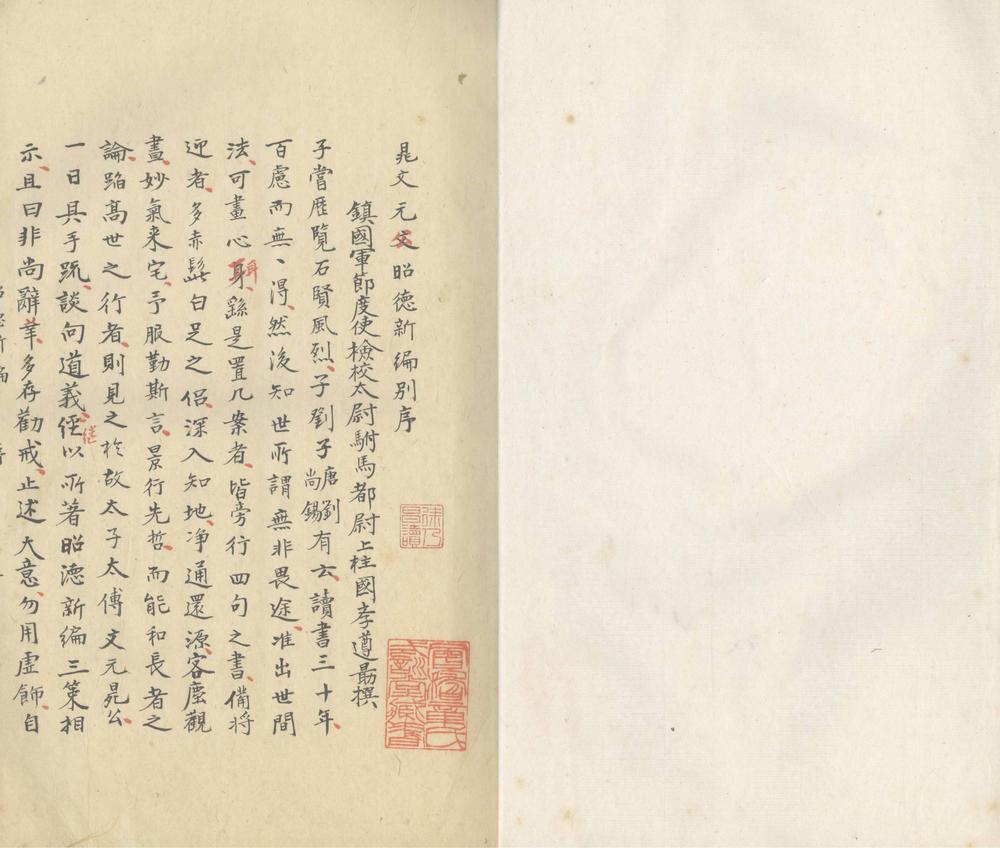 晁文元公昭德新編別序
鎮國軍節度使檢校太尉駙馬都尉上柱國李遵最撰
子嘗歷覽石賢風烈子劉子唐劉尚錫有云讀書三十年
百慮而無〻得然後知世所謂無非畏途准出世間
法可畫心身繇是置几案者皆旁行四句之書備將
迎者多赤髭白足之侶深入知地净通還源客塵觀
畫妙氣来宅予服勤斯言景行先哲而能和長者之
論蹈髙世之行者則見之於故太子太傅文元晁公
一日具手䟽談句道義徑以所著昭德新编三策相
示且曰非尚辭筆多存勸戒止述大意勿用虛飾自